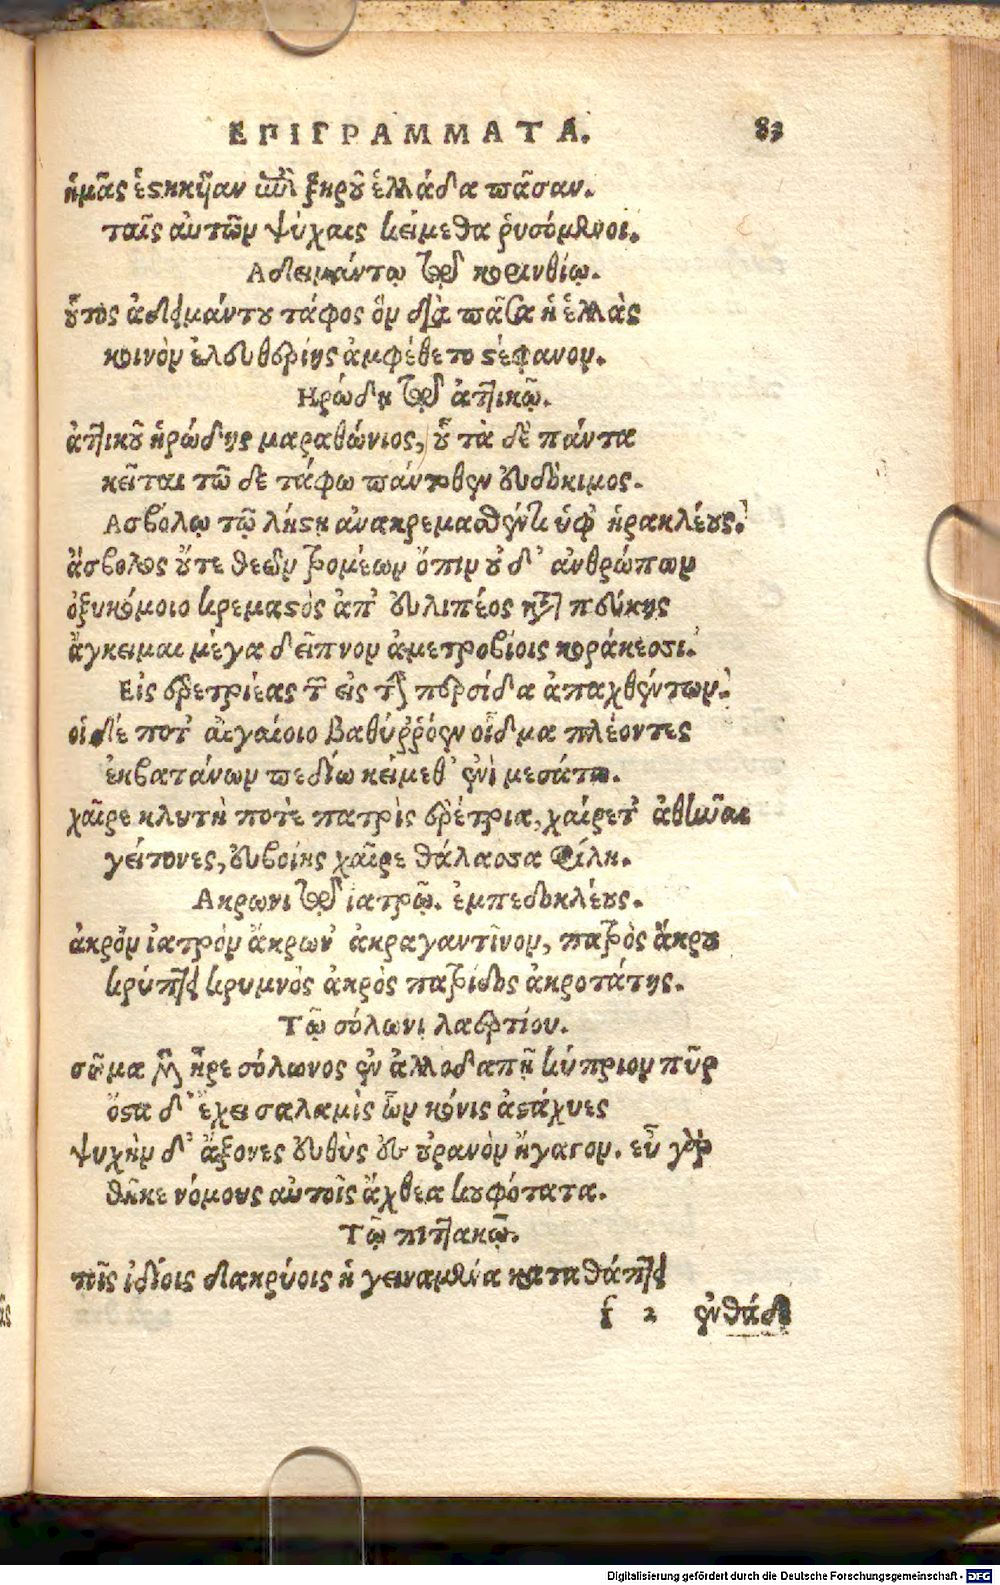 ΕΠΙΓΡΑΜΜΑΤΑ. 83
ἡμᾶς ἑστηκῆαν ἐπὶ ξηροῦ ἑλλάδα πᾶσαν.
ταῖς αὐτῶν ψύχαις κείμεθα ῥυσόμενοι.
Αδειμάντῳ τῷ κορινθίῳ.
οὗτος ἀδειμάντου τάφος ὃν διὰ πᾶσα ἡ ἑλλὰς
κοινὸν ἐλευθερίης ἀμφέθετο στέφανον.
Ηρώδῃ τῷ ἀττικῷ.
ἀττικοῦ ἡρώδης μαραθώνιος, οὗ τὰ δὲ πάντα
κεῖται τῶ δε τάφω πάντοθεν εὐδόκιμος.
Ασβόλῳ τῷ λῃστῇ ἀνακρεμασθέντι ὑφ' ἡρακλέους.
ἄσβολος οὔτε θεῶν τρομέων ὄπιν οὐδ' ἀνθρώπων
ὀξυκόμοιο κρεμαστὸς ἀπ' εὐλιπέος κατὰ πεύκης
ἄγκειμαι μέγα δεῖπνον ἀμετροβίοις κοράκεσσι.
Εἰς ἐρετριέας τοὺς εἰς τὴν περσίδα ἀπαχθέντων.
οἱ δέ ποτ' αἰγαίοιο βαθύῤῥόεν οἶδμα πλέοντες
ἐκβατάνων πεδίω κείμεθ' ἐνὶ μεσάτω.
χαῖρε κλυτὴ ποτὲ πατρὶς ἐρέτρια, χαίρετ' ἀθῆναι
γείτονες, εὐβοίης χαῖρε θάλασσα φίλη.
Ακρωνι τῷ ἰατρῷ. ἐμπεδοκλέους.
ἀκρὸν ἰατρὸν ἄκρων' ἀκραγαντῖνον, πατρὸς ἄκρου
κρύπτει κρυμνὸς ἀκρὸς πατρίδος ἀκροτάτης.
Τῷ σόλωνι λαερτίου.
σῶμα μὲν ἦρε σόλωνος ἐν ἀλλοδαπῇ κύπριον πῦρ
ὀστᾶ δ' ἔχει σαλαμὶς ὧν κόνις ἀστάχυες
ψυχὴν δ' ἄξονες εὐθὺς ἐς οὐρανὸν ἤγαγον. εὖ γὰρ
θῆκε νόμους αὐτοῖς ἄχθεα κουφότατα.
Τῷ πιττακῷ.
τοῖς ἰδίοις δακρύοις ἡ γειναμένα καταθάπτει
f 2 ἐνθάδε
Digitalisierung gefördert durch die Deutsche Forschungsgemeinschaft - DFG